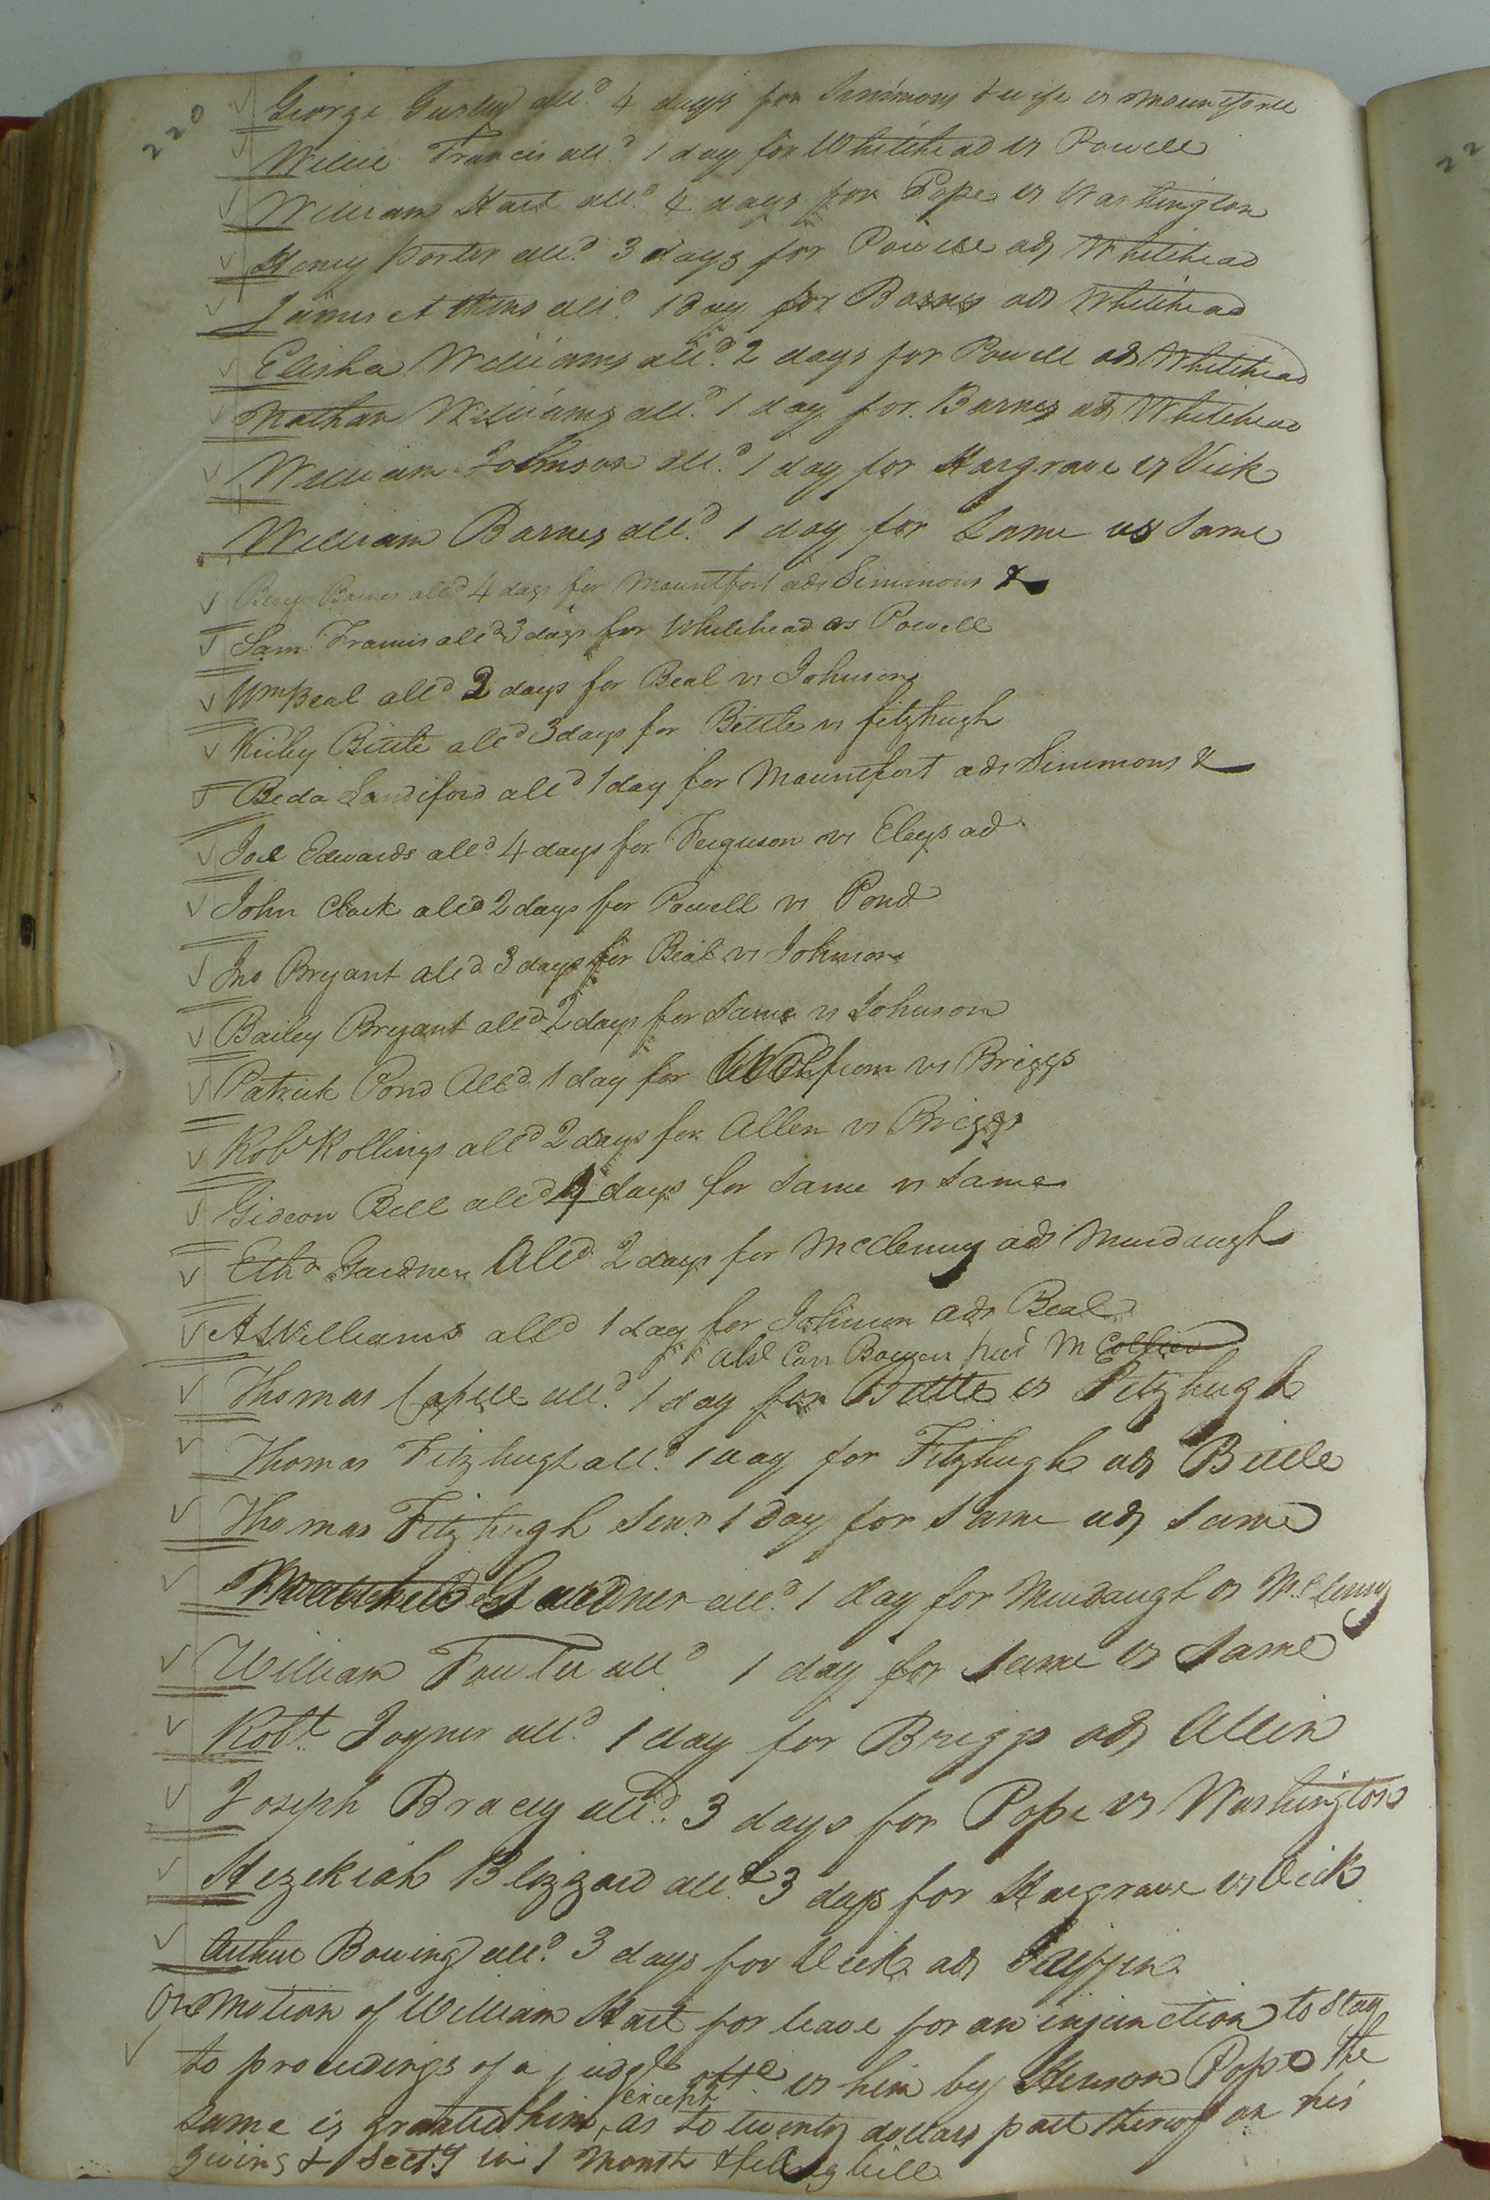 220
George Gurley all.d 4 days for Simmons & wife vs Mountfort
Willie Francis all.d 1 day for Whitehead vs Powell
William Hart all.d 4 days for Pope vs Washington
Henry Porter all.d 3 days for Powell ads Whitehead
James Atkins all.d 1 day for Barnes ads Whitehead
Elisha Williams all.d 2 days for Powell ads Whitehead
Nathan Williams all.d 1 day for Barnes ads Whitehead
William Johnson all.d 1 day for Hargrave vs Vick
William Barnes all.d 1 day for Same vs Same
Benj Barnes all.d 4 days for Mountfort ads Simmons &
Sam Francis all.d 3 days for Whitehead vs Powell
Wm Beal all.d 2 days for Beal vs Johnson
Kirby Bittle all.d 3 days for Bittle vs fitzhugh
Beda Landiford all.d 1 day for Mountfort ads Simmons &
Joel Edwards all.d 4 days for Ferguson vs Eleys ad
John Clark all.d 2 days for Powell vs Pond
Jno Bryant all.d 3 days for Beal vs Johnson
Bailey Bryant all.d 2 days for Same vs Johnson
Patrick Pond All.d 1 day for vs Briggs
Rob Rollings all.d 2 days for Allen vs Briggs
Gideon Bell all.d 4 days for Same vs Same
Eth.d Gardner All.d 2 days for McClenny ads Murdaugh
A S Williams all.d 1 day for Johnson ads Beal
Abs Con Bowen M Collier
Thomas Capell all.d 1 day for Bittle vs Fitzhugh
Thomas Fitzhugh all.d 1 day for Fitzhugh ads Bittle
Thomas Fitzhugh Senr 1 day for Same ads Same
Gardner all.d 1 day for Murdaugh vs McClenny
William Fowler all.d 1 day for Same vs Same
Robt Joyner all.d 1 day for Briggs ads Allen
Joseph Bracey all.d 3 days for Pope vs Washington
Hezekiah Blizzard all.d 3 days for Hargrave vs Vick
Arthur Bowing all.d 3 days for Vick ads
On Motion of William Hart for leave for an injunction to Stay
to proceedings of a judgt vs him by Henson Pope the
except
same is granted him, as to twenty dollars part thereof on his
giving & Secty in 1 Month & filing bill
22